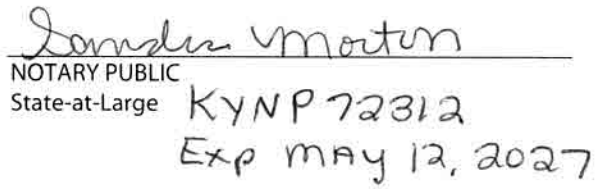 Sandra Morton
NOTARY PUBLIC
State-at-Large KYNP72312
Exp MAY 12, 2027